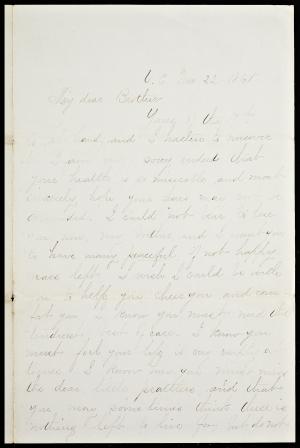 Dec 22 1868
My dear Brother
Yours of the
is at hand, and I hasten to answer
I am very sorry indeed that
your health is so miserable and most
sincerely hope your days may not be
I could not bear to lose
you now, my brother, and I want you
to have many peaceful, if not happy
years left. I wish I could be with
you to help you, cheer you, and com
fort you. I know you must need the
kindness. I know you
must feel your life is very empty
I know how you must miss
the dear little prattlers and that
you may sometimes think there is
nothing left to live for but do not